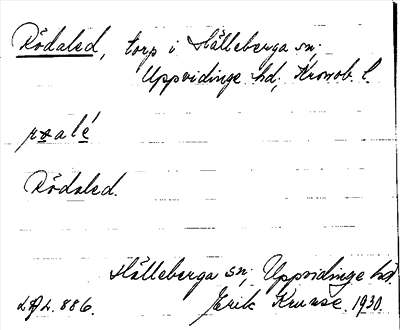 Rödaled, torp i Hälleberga sn;
Uppvidinge hd, Kronob. l.
røalé
Rödaled.
Hälleberga sn; Uppvidinge hd.
LAL. 886. Erik Kruse. 1930.